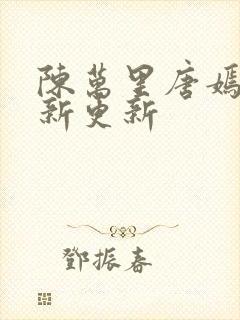 陳萬里唐嫣
新更新
鄧振春